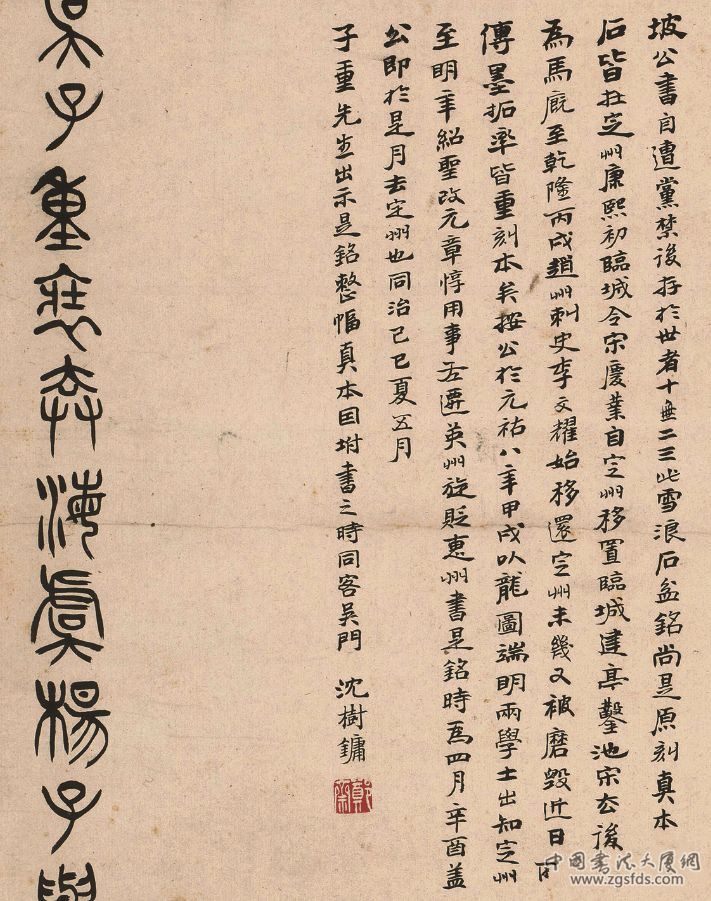 坡公書自遭黨禁後存於世者十無二三此雪浪石盆銘尚是原刻真本
石皆在定州康熙初臨城令宋廣業自定州移置臨城建亭鑿池宋去後
為馬廐至乾隆丙戌趙州刺史李文耀始移還定州未幾又被磨毀近日所
傳墨拓率皆重刻本矣按公於元祐八年甲戌以龍圖端明兩學士出知定州
至明年紹聖改元章惇用事左遷英州旋貶惠州書是銘時為四月辛酉蓋
公即於是月去定州也同治己巳夏五月
子重先生出示是銘整幅真本因坿書之時同客吳門 沈樹鏞
吳子重裝弆海虞楊子與
鄭齋
中国书法大厦網
www.zgsfds.com